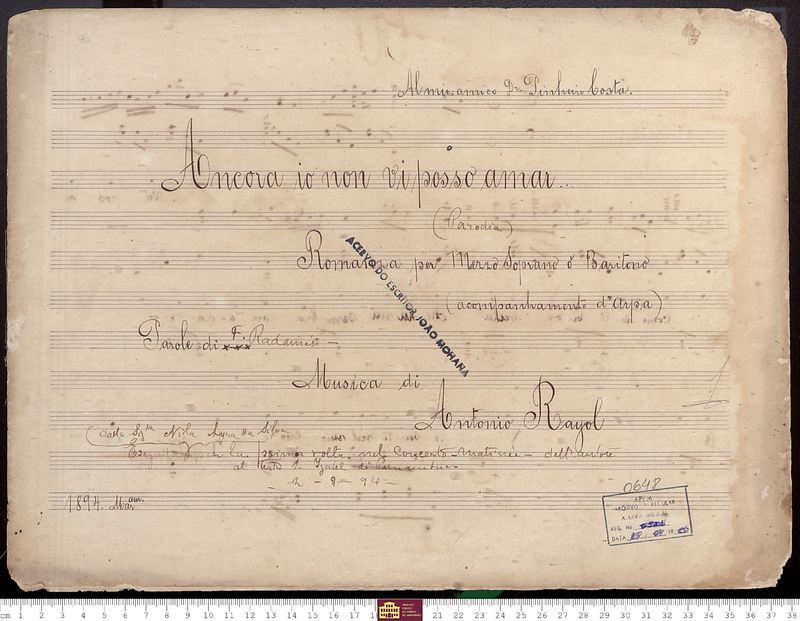 Al mio amico Dr. Pinheiro Costa.
Ancora io non vi posso amar...
(Parodia)
Romanza per Mezzo Soprano ò Baritono
(acompanhamento d'Arpa)
ACERVO DO ESCRITOR JOÃO MOHANA
Parole di F. Radamés
Musica di
Antonio Rayol
1
(dalla Sig.ta Nila da Silva
per la prima volta nel Concerto-matinée dell'autore
al Izabel di Pernambuco
2-9-94
1894. Mar
0642
APEM
ARQUIVO
REG. No
DATA 19
cm 1 2 3 4 5 6 7 8 9 10 11 12 13 14 15 16 17 21 22 23 24 25 26 27 28 29 30 31 32 33 34 35 36 37 38